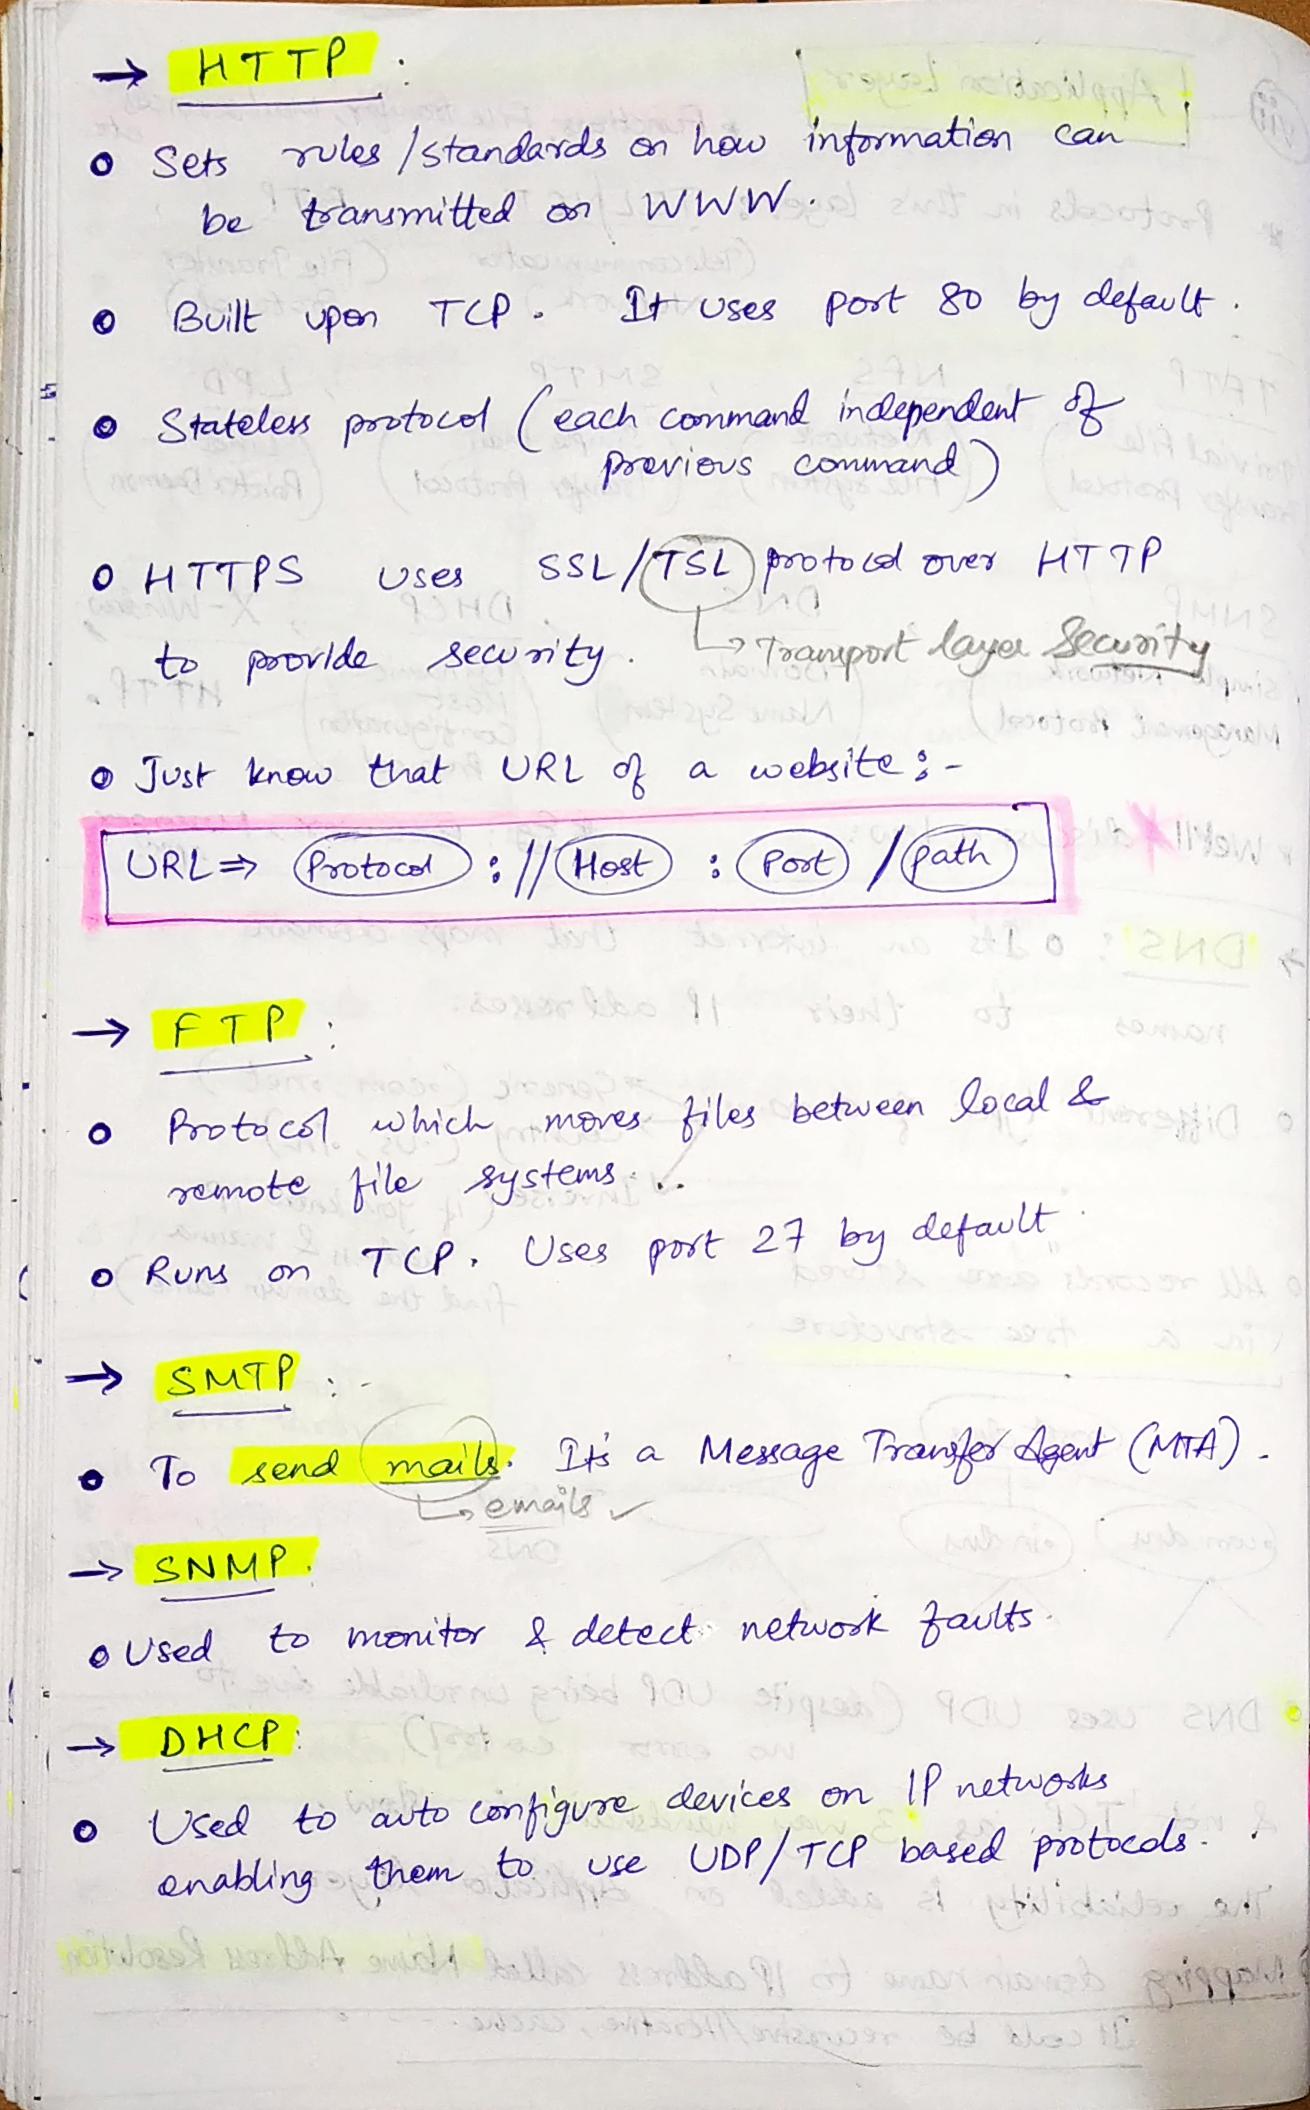 → HTTP :
o Sets rules/standards on how information can
be transmitted on WWW.
o Built upon TCP. It uses port 80 by default.
o Stateless protocol (each command independent of
previous command)
o HTTPS uses SSL/TSL protocol over HTTP
to provide security. ↳ Transport layer Security
o Just know that URL of a website :-
URL ⇒ Protocol : // Host : Port / path
→ FTP :
o Protocol which moves files between local &
remote file systems...
o Runs on TCP. Uses port 27 by default.
→ SMTP :-
o To send mails. It's a Message Transfer Agent (MTA).
↳ emails ✓
→ SNMP.
o Used to monitor & detect network faults.
→ DHCP:
o Used to auto configure devices on IP networks
enabling them to use UDP/TCP based protocols.